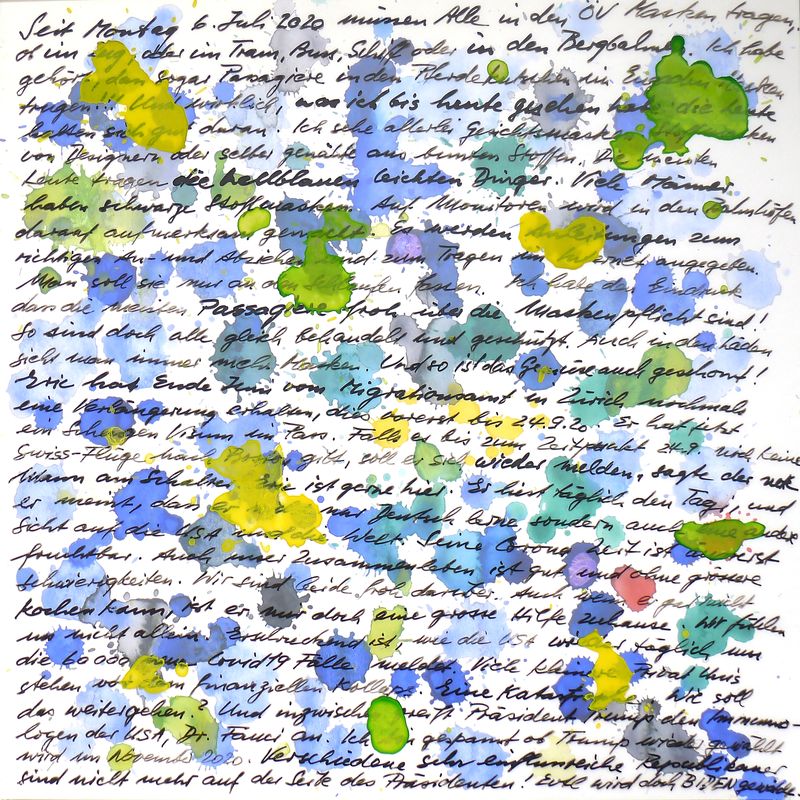 Seit Montag 6. Juli 2020 müssen Alle in den ÖV Masken tragen,
ob im Zug, oder im Tram, Bus, Schiff oder in den Bergbahnen. Ich habe
gehört, dass sogar Passagiere in den Pferdekutschen im Engadin Masken
tragen!!! Und wirklich, was ich bis heute gesehen habe: die Leute
halten sich gut daran. Ich sehe allerlei Gesichtsmasken
von Designern oder selber genähte aus bunten Stoffen. Die meisten
Leute tragen die hellblauen leichten Dinger. Viele Männer
haben schwarze Stoffmasken. Auf Monitoren wird in den Bahnhöfen
darauf aufmerksam gemacht. Es werden Anleitungen zum
richtigen An- und Abziehen und zum Tragen im Internet angegeben.
Man soll sie nur an den Schlaufen fassen. Ich habe den Eindruck
dass die meisten Passagiere froh über die Maskenpflicht sind!
So sind doch alle gleich behandelt und geschützt. Auch in den Läden
sieht man immer mehr Masken. Und so ist das auch geschont!
Eric hat Ende Juni vom Migrationsamt in Zürich nochmals
eine Verlängerung erhalten, dies vorerst bis 24.9.20. Er hat jetzt
ein Schengen Visum im Pass. Falls er bis zum Zeitpunkt 24.9. noch keine
Swiss-Flüge nach Boston gibt, soll er sich wieder melden, sagte der
Mann am Schalter. Eric ist gerne hier. Er liest täglich den Tagi und
er meint, dass er nicht nur Deutsch lerne sondern auch eine andere
Sicht auf die Welt. Seine Corona Zeit ist äusserst
fruchtbar. Auch unser Zusammenleben ist gut und ohne grössere
Schwierigkeiten. Wir sind beide froh darüber. Auch wenn er gar nicht
kochen kann, ist er mir doch eine grosse Hilfe zuhause. Wir fühlen
uns nicht allein. Erschreckend ist, wie die USA täglich um
die 60'000 neue Covid19 Fälle meldet. Viele kleinere Privat Unis
stehen vor dem finanziellen Kollaps. Eine Katastrophe. Wie soll
das weitergehen? Und inzwischen greift Präsident Trump den Immuno-
logen der USA, Dr. Fauci an. Ich bin gespannt ob Trump wieder gewählt
wird im November 2020. Verschiedene sehr einflussreiche Republikaner
sind nicht mehr auf der Seite des Präsidenten! Evtl. wird doch BIDEN gewählt.